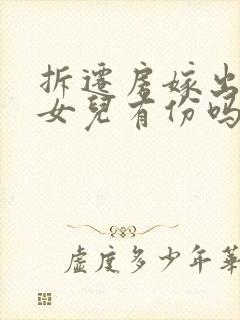 拆遷房嫁出
女兒有份嗎
虛度多少年華